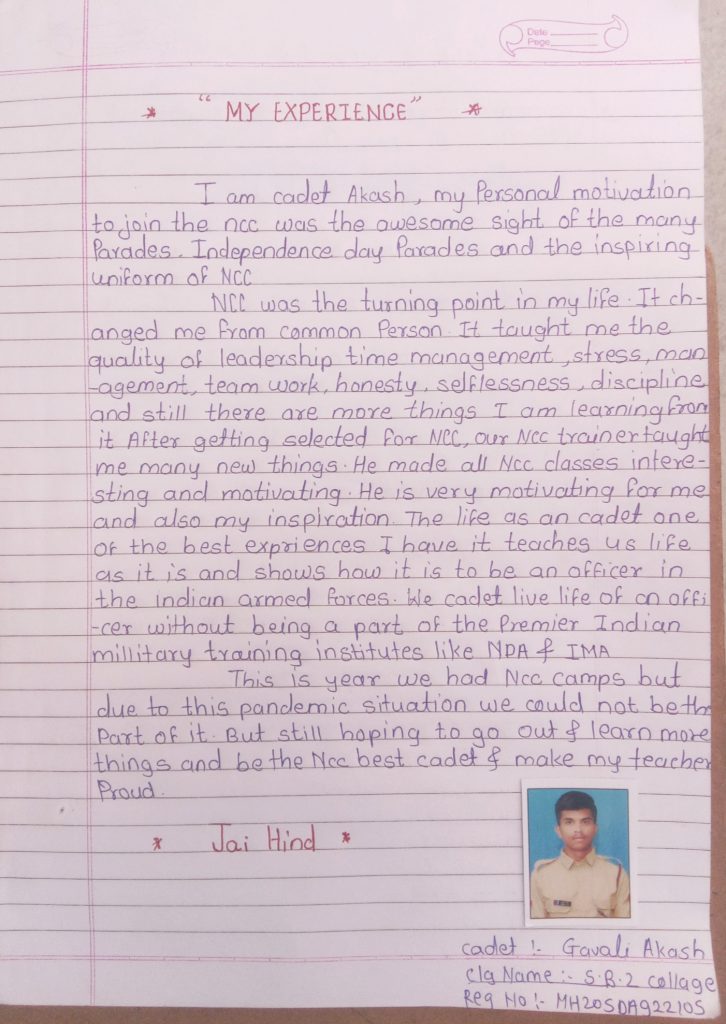 Date
Page
* "MY EXPERIENCE" *
I am cadet Akash, my Personal motivation
to join the ncc was the awesome sight of the many
Parades. Independence day Parades and the inspiring
uniform of NCC
NCC was the turning point in my life. It ch-
anged me from common Person. It taught me the
quality of leadership time management, stress, man
-agement, team work, honesty, selflessness, discipline
and still there are more things I am learning from
it After getting selected for NCC, our NCC trainer taught
me many new things. He made all Ncc classes intere-
sting and motivating. He is very motivating for me
and also my inspiration. The life as an cadet one
of the best expriences I have it teaches us life
as it is and shows how it is to be an officer in
the indian armed forces. We cadet live life of an offi
-cer without being a part of the Premier Indian
millitary training institutes like NDA & IMA
This is year we had Ncc camps but
due to this pandemic situation we could not be the
Part of it. But still hoping to go out & learn more
things and be the Ncc best cadet & make my teacher
Proud.
* Jai Hind *
cadet :- Gavali Akash
clg Name :- S.B.2 collage
Reg No :- MH20SDA922105